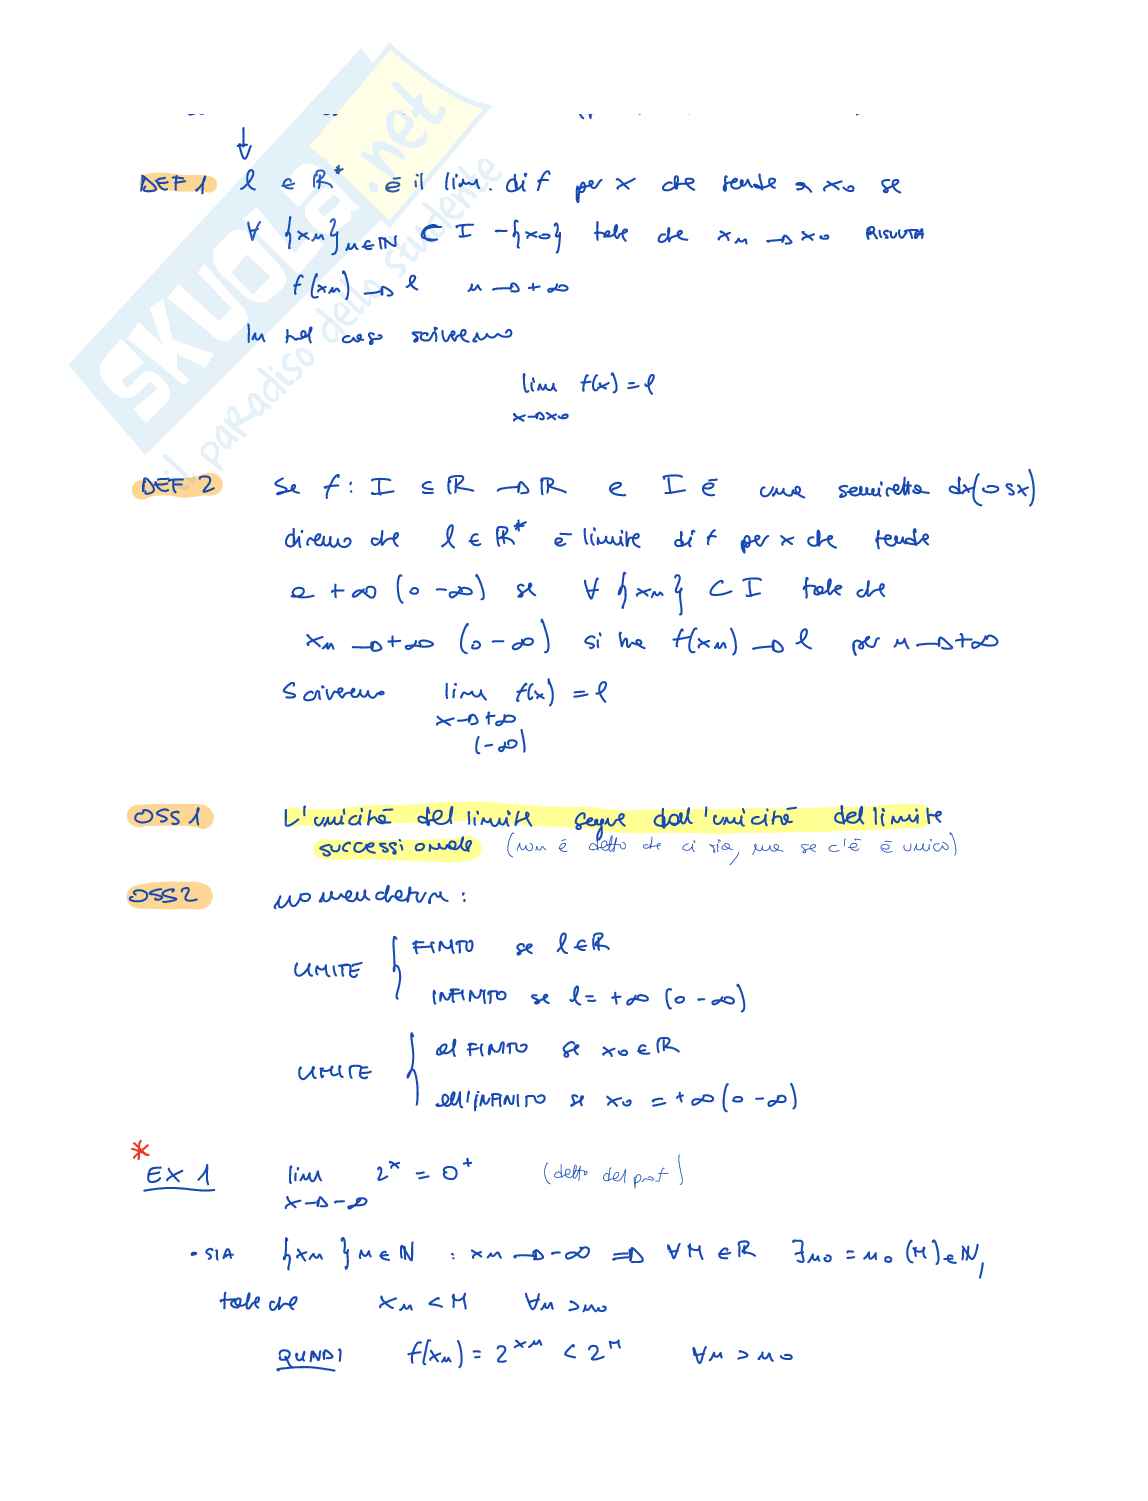 SKUOLA.net
il paradiso dello studente
DEF 1 l ∈ ℝ* è il lim. di f per x che tende a x₀ se
∀ {xₙ}ₙ∈ℕ ⊂ I - {x₀} tale che xₙ → x₀ RISULTA
f(xₙ) → l n → +∞
In tal caso scriveremo
lim f(x) = l
x→x₀
DEF 2 Se f: I ⊆ ℝ → ℝ e I è una semiretta dx (o sx)
diremo che l ∈ ℝ* è limite di f per x che tende
a +∞ (o -∞) se ∀ {xₙ} ⊂ I tale che
xₙ → +∞ (o -∞) si ha f(xₙ) → l per n → +∞
Scriveremo lim f(x) = l
x→+∞
(-∞)
OSS 1 L'unicità del limite segue dall'unicità del limite
successionale (non è detto che ci sia, ma se c'è è unico)
OSS 2 nomenclatura:
LIMITE { FINITO se l ∈ ℝ
INFINITO se l = +∞ (o -∞)
LIMITE { al FINITO se x₀ ∈ ℝ
all'INFINITO se x₀ = +∞ (o -∞)
*
EX 1 lim 2ˣ = 0⁺ (detto dal prof)
x→-∞
• SIA {xₙ}ₙ∈ℕ : xₙ → -∞ ⇒ ∀M ∈ ℝ ∃n₀ = n₀(M) ∈ ℕ,
tale che xₙ < M ∀n > n₀
QUINDI f(xₙ) = 2^xₙ < 2^M ∀n > n₀